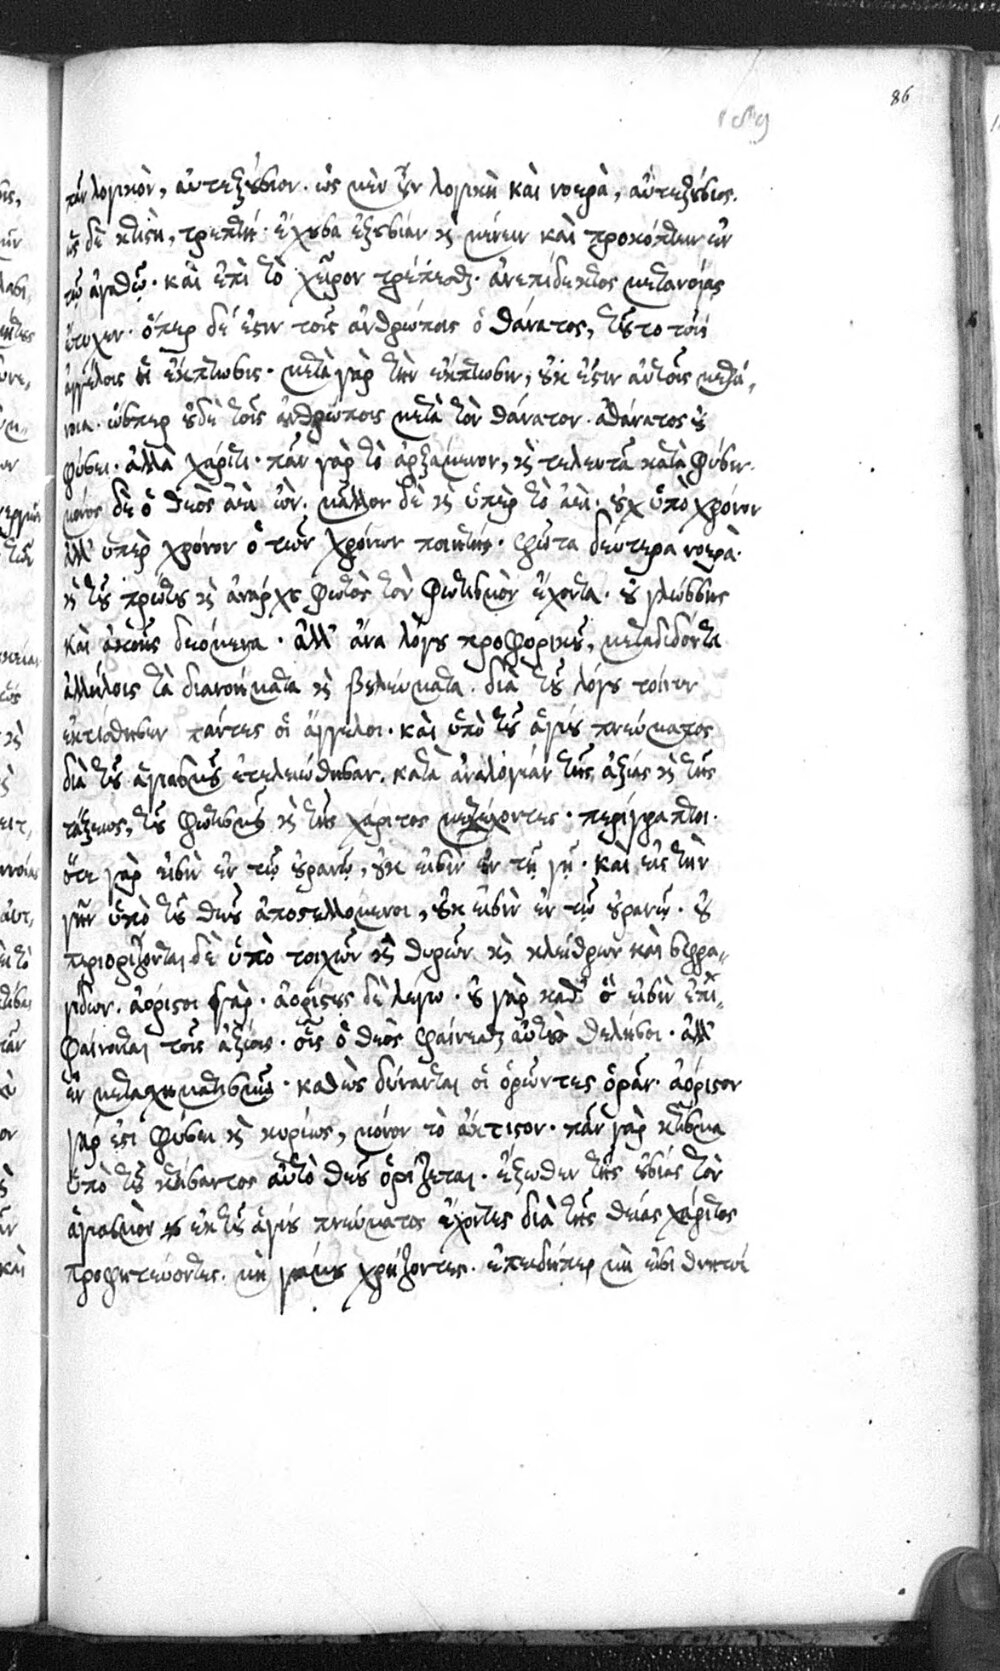 86
πᾶν λογικὸν, αὐτεξούσιον. ὡς μὲν οὖν λογικὴ καὶ νοερὰ, αὐτεξούσιος.
ὡς δὲ κτιστὴ, τρεπτή· ἔχουσα ἐξουσίαν καὶ μένειν καὶ προκόπτειν ἐν
τῷ ἀγαθῷ· καὶ ἐπὶ τὸ χεῖρον τρέπεσθαι· ἀνεπίδεκτος μετανοίας
ἔτυχεν. ὅπερ δέ ἐστιν τοῖς ἀνθρώποις ὁ θάνατος, τοῦτο τοῖς
ἀγγέλοις ἡ ἔκπτωσις· μετὰ γὰρ τὴν ἔκπτωσιν, οὐκ ἔστιν αὐτοῖς μετά-
νοια. ὥσπερ οὐδὲ τοῖς ἀνθρώποις μετὰ τὸν θάνατον· ἀθάνατος οὐ
φύσει· ἀλλὰ χάριτι· πᾶν γὰρ τὸ ἀρξάμενον, καὶ τελευτᾷ κατὰ φύσιν.
μόνος δὲ ὁ θεὸς ἀεὶ ὤν. μᾶλλον δὲ καὶ ὑπὲρ τὸ ἀεί· οὐχ ὑπὸ χρόνον
ἀλλ' ὑπὲρ χρόνον ὁ τῶν χρόνων ποιητής. φῶτα δεύτερα νοερὰ.
ἐκ τοῦ πρώτου καὶ ἀνάρχου φωτὸς τὸν φωτισμὸν ἔχοντα. οὐ γλώσσης
καὶ ἀκοῆς δεόμενα· ἀλλ' ἄνευ λόγου προφορικοῦ, μεταδιδόντα
ἀλλήλοις τὰ διανοήματα καὶ βουλεύματα. διὰ τοῦ λόγου τοίνυν
ἐκτίσθησαν πάντες οἱ ἄγγελοι· καὶ ὑπὸ τοῦ ἁγίου πνεύματος
διὰ τοῦ ἁγιασμοῦ ἐτελειώθησαν. κατὰ ἀναλογίαν τῆς ἀξίας καὶ τῆς
τάξεως, τοῦ φωτισμοῦ καὶ τῆς χάριτος μετέχοντες· περίγραπτοι·
ὅτε γὰρ εἰσὶν ἐν τῷ οὐρανῷ, οὐκ εἰσὶν ἐν τῇ γῇ· καὶ εἰς τὴν
γῆν ὑπὸ τοῦ θεοῦ ἀποστελλόμενοι, οὐκ εἰσὶν ἐν τῷ οὐρανῷ. οὐ
περιορίζονται δὲ ὑπὸ τοιχῶν καὶ θυρῶν καὶ κλείθρων καὶ σφρα-
γίδων. ἀόριστοι γὰρ. ἀορίστους δὲ λέγω· οὐ γὰρ καθ' ὅ εἰσὶν ἐπι-
φαίνονται τοῖς ἀξίοις· οἷς ὁ θεὸς φαίνεσθαι αὐτοὺς θελήσοι. ἀλλ'
ἐν μετασχηματισμῷ· καθὼς δύνανται οἱ ὁρῶντες ὁρᾶν. ἀόριστον
γάρ ἐστι φύσει καὶ κυρίως, μόνον τὸ ἄκτιστον. πᾶν γὰρ κτίσμα
ὑπὸ τοῦ κτίσαντος αὐτὸ θεοῦ ὁρίζεται. ἔξωθεν τῆς οὐσίας τὸν
ἁγιασμὸν ἐκ τοῦ ἁγίου πνεύματος ἔχοντες διὰ τῆς θείας χάριτος
προφητεύοντες. μὴ γάμου χρήζοντες. ἐπειδήπερ μὴ εἰσὶ θνητοί